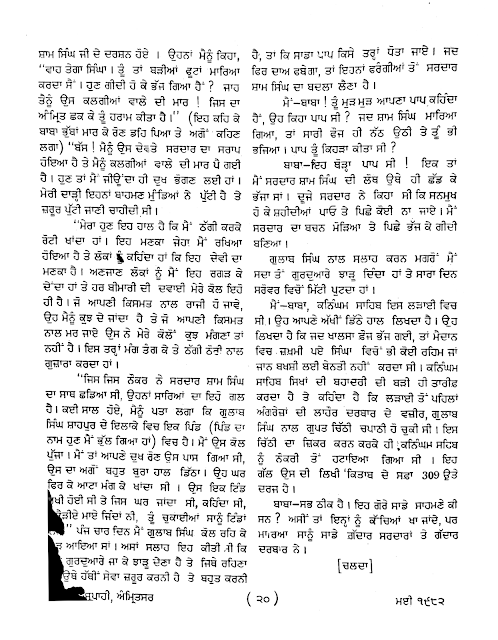 ਸ਼ਾਮ ਸਿੰਘ ਜੀ ਦੇ ਦਰਸ਼ਨ ਹੋਏ । ਉਹਨਾਂ ਮੈਨੂੰ ਕਿਹਾ,
"ਵਾਹ ਤੇਗਾ ਸਿੰਘਾ ! ਤੂੰ ਤਾਂ ਬੜੀਆਂ ਫੂਟਾਂ ਮਾਰਿਆ
ਕਰਦਾ ਸੈਂ । ਹੁਣ ਗੀਦੀ ਹੋ ਕੇ ਭੱਜ ਗਿਆ ਹੈਂ ? ਜਾਹ
ਤੈਨੂੰ ਉਸ ਕਲਗੀਆਂ ਵਾਲੇ ਦੀ ਮਾਰ ! ਜਿਸ ਦਾ
ਅੰਮ੍ਰਿਤ ਛਕ ਕੇ ਤੂੰ ਹਰਾਮ ਕੀਤਾ ਹੈ।" (ਇਹ ਕਹਿ ਕੇ
ਬਾਬਾ ਭੁੱਬਾਂ ਮਾਰ ਕੇ ਰੋਣ ਡਹਿ ਪਿਆ ਤੇ ਅਗੋਂ ਕਹਿਣ
ਲਗਾ) "ਬੱਸ ! ਮੈਨੂੰ ਉਸ ਦੇਵਤੇ ਸਰਦਾਰ ਦਾ ਸਰਾਪ
ਹੋਇਆ ਹੈ ਤੇ ਮੈਨੂੰ ਕਲਗੀਆਂ ਵਾਲੇ ਦੀ ਮਾਰ ਪੈ ਗਈ
ਹੈ। ਹੁਣ ਤਾਂ ਮੈਂ ਜੀਉਂਦਾ ਹੀ ਦੁਖ ਭੋਗਣ ਲਈ ਹਾਂ।
ਮੇਰੀ ਦਾੜ੍ਹੀ ਇਹਨਾਂ ਬਾਹਮਣ ਮੁੰਡਿਆਂ ਨੇ ਪੁੱਟੀ ਹੈ ਤੇ
ਜ਼ਰੂਰ ਪੁੱਟੀ ਜਾਣੀ ਚਾਹੀਦੀ ਸੀ।
"ਮੇਰਾ ਹੁਣ ਇਹ ਹਾਲ ਹੈ ਕਿ ਮੈਂ ਠੱਗੀ ਕਰਕੇ
ਰੋਟੀ ਖਾਂਦਾ ਹਾਂ। ਇਹ ਮਣਕਾ ਜੇਹਾ ਮੈਂ ਰਖਿਆ
ਹੋਇਆ ਹੈ ਤੇ ਲੋਕਾਂ ਨੂੰ ਕਹਿੰਦਾ ਹਾਂ ਕਿ ਇਹ ਦੇਵੀ ਦਾ
ਮਣਕਾ ਹੈ। ਅਣਜਾਣ ਲੋਕਾਂ ਨੂੰ ਮੈਂ ਇਹ ਰਗੜ ਕੇ
ਦੇਂਦਾ ਹਾਂ ਤੇ ਹਰ ਬੀਮਾਰੀ ਦੀ ਦਵਾਈ ਮੇਰੇ ਕੋਲ ਇਹੋ
ਹੀ ਹੈ। ਜੋ ਆਪਣੀ ਕਿਸਮਤ ਨਾਲ ਰਾਜੀ ਹੋ ਜਾਵੇ,
ਉਹ ਮੈਨੂੰ ਕੁਝ ਦੇ ਜਾਂਦਾ ਹੈ ਤੇ ਜੋ ਆਪਣੀ ਕਿਸਮਤ
ਨਾਲ ਮਰ ਜਾਏ ਉਸ ਨੇ ਮੇਰੇ ਕੋਲੋਂ ਕੁਝ ਮੰਗਣਾ ਤਾਂ
ਨਹੀਂ ਹੈ। ਇਸ ਤਰ੍ਹਾਂ ਮੰਗ ਤੰਗ ਕੇ ਤੇ ਠੱਗੀ ਠੋਰੀ ਨਾਲ
ਗੁਜ਼ਾਰਾ ਕਰਦਾ ਹਾਂ।
"ਜਿਸ ਜਿਸ ਨੌਕਰ ਨੇ ਸਰਦਾਰ ਸ਼ਾਮ ਸਿੰਘ
ਦਾ ਸਾਥ ਛਡਿਆ ਸੀ, ਉਹਨਾਂ ਸਾਰਿਆਂ ਦਾ ਇਹੋ ਹਾਲ
ਹੈ। ਕਈ ਸਾਲ ਹੋਏ, ਮੈਨੂੰ ਪਤਾ ਲਗਾ ਕਿ ਗੁਲਾਬ
ਸਿੰਘ ਸ਼ਾਹਪੁਰ ਦੇ ਇਲਾਕੇ ਵਿਚ ਇਕ ਪਿੰਡ (ਪਿੰਡ ਦਾ
ਨਾਮ ਹੁਣ ਮੈਂ ਭੁੱਲ ਗਿਆ ਹਾਂ) ਵਿਚ ਹੈ। ਮੈਂ ਉਸ ਕੋਲ
ਪੁੱਜਾ। ਮੈਂ ਤਾਂ ਆਪਣੇ ਦੁਖ ਰੋਣ ਉਸ ਪਾਸ ਗਿਆ ਸੀ,
ਉਸ ਦਾ ਅਗੋਂ ਬਹੁਤ ਬੁਰਾ ਹਾਲ ਡਿੱਠਾ। ਉਹ ਘਰ
ਫਿਰ ਕੇ ਆਟਾ ਮੰਗ ਕੇ ਖਾਂਦਾ ਸੀ । ਉਸ ਇਕ ਟਿੰਡ
ਹੋਈ ਸੀ ਤੇ ਜਿਸ ਘਰ ਜਾਂਦਾ ਸੀ, ਕਹਿੰਦਾ ਸੀ,
ਮਾਏ ਜਿੰਦਾਂ ਨੀ, ਤੂੰ ਚੁਕਾਈਆਂ ਸਾਨੂੰ ਟਿੰਡਾਂ
" ਪੰਜ ਚਾਰ ਦਿਨ ਮੈਂ ਗੁਲਾਬ ਸਿੰਘ ਕੋਲ ਰਹਿ ਕੇ
ਆਇਆ ਸਾਂ। ਅਸਾਂ ਸਲਾਹ ਇਹ ਕੀਤੀ ਸੀ ਕਿ
ਗੁਰਦੁਆਰੇ ਜਾ ਕੇ ਝਾੜੂ ਦੇਣਾ ਹੈ ਤੇ ਜਿਥੇ ਰਹਿਣਾ
ਉਥੇ ਹੱਥੀਂ ਸੇਵਾ ਜ਼ਰੂਰ ਕਰਨੀ ਹੈ ਤੇ ਬਹੁਤ ਕਰਨੀ
ਹੈ, ਤਾਂ ਕਿ ਸਾਡਾ ਪਾਪ ਕਿਸੇ ਤਰ੍ਹਾਂ ਧੋਤਾ ਜਾਏ। ਜਦ
ਫਿਰ ਦਾਅ ਫਬੇਗਾ, ਤਾਂ ਇਹਨਾਂ ਫਰੰਗੀਆਂ ਤੋਂ ਸਰਦਾਰ
ਸ਼ਾਮ ਸਿੰਘ ਦਾ ਬਦਲਾ ਲੈਣਾ ਹੈ।
ਮੈਂ-ਬਾਬਾ ! ਤੂੰ ਮੁੜ ਮੁੜ ਆਪਣਾ ਪਾਪ ਕਹਿੰਦਾ
ਹੈਂ, ਉਹ ਕਿਹਾ ਪਾਪ ਸੀ ? ਜਦ ਸ਼ਾਮ ਸਿੰਘ ਮਾਰਿਆ
ਗਿਆ, ਤਾਂ ਸਾਰੀ ਫੌਜ ਹੀ ਨੱਠ ਉਠੀ ਤੇ ਤੂੰ ਭੀ
ਭਜਿਆ। ਪਾਪ ਤੂੰ ਕਿਹੜਾ ਕੀਤਾ ਸੀ ?
ਬਾਬਾ-ਇਹ ਥੋੜ੍ਹਾ ਪਾਪ ਸੀ ! ਇਕ ਤਾਂ
ਮੈਂ ਸਰਦਾਰ ਸ਼ਾਮ ਸਿੰਘ ਦੀ ਲੋਥ ਉਥੇ ਹੀ ਛੱਡ ਕੇ
ਭੱਜਾ ਸਾਂ। ਦੂਜੇ ਸਰਦਾਰ ਨੇ ਕਿਹਾ ਸੀ ਕਿ ਸਨਮੁਖ
ਹੋ ਕੇ ਸ਼ਹੀਦੀਆਂ ਪਾਓ ਤੇ ਪਿਛੇ ਕੋਈ ਨਾ ਜਾਏ। ਮੈਂ
ਸਰਦਾਰ ਦਾ ਬਚਨ ਮੋੜਿਆ ਤੇ ਪਿਛੇ ਭੱਜ ਕੇ ਗੀਦੀ
ਬਣਿਆ।
ਗੁਲਾਬ ਸਿੰਘ ਨਾਲ ਸਲਾਹ ਕਰਨ ਮਗਰੋਂ ਮੈਂ
ਸਦਾ ਤੋਂ ਗੁਰਦੁਆਰੇ ਝਾੜੂ ਦਿੰਦਾ ਹਾਂ ਤੇ ਸਾਰਾ ਦਿਨ
ਸਰੋਵਰ ਵਿਚੋਂ ਮਿੱਟੀ ਪੁਟਦਾ ਹਾਂ।
ਮੈਂ-ਬਾਬਾ, ਕਨਿੰਘਮ ਸਾਹਿਬ ਇਸ ਲੜਾਈ ਵਿਚ
ਸੀ। ਉਹ ਆਪਣੇ ਅੱਖੀਂ ਡਿੱਠੇ ਹਾਲ ਲਿਖਦਾ ਹੈ। ਉਹ
ਲਿਖਦਾ ਹੈ ਕਿ ਜਦ ਖਾਲਸਾ ਫੌਜ ਭੱਜ ਗਈ, ਤਾਂ ਮੈਦਾਨ
ਵਿਚ ਜ਼ਖ਼ਮੀ ਪਏ ਸਿੰਘਾਂ ਵਿਚੋਂ ਭੀ ਕੋਈ ਰਹਿਮ ਜਾਂ
ਜਾਨ ਬਖਸ਼ੀ ਲਈ ਬੇਨਤੀ ਨਹੀਂ ਕਰਦਾ ਸੀ। ਕਨਿੰਘਮ
ਸਾਹਿਬ ਸਿਖਾਂ ਦੀ ਬਹਾਦਰੀ ਦੀ ਬੜੀ ਹੀ ਤਾਰੀਫ਼
ਕਰਦਾ ਹੈ ਤੇ ਕਹਿੰਦਾ ਹੈ ਕਿ ਲੜਾਈ ਤੋਂ ਪਹਿਲਾਂ
ਅੰਗਰੇਜ਼ਾਂ ਦੀ ਲਾਹੌਰ ਦਰਬਾਰ ਦੇ ਵਜ਼ੀਰ, ਗੁਲਾਬ
ਸਿੰਘ ਨਾਲ ਗੁਪਤ ਚਿੱਠੀ ਚਪਾਠੀ ਹੋ ਚੁਕੀ ਸੀ। ਇਸ
ਚਿੱਠੀ ਦਾ ਜ਼ਿਕਰ ਕਰਨ ਕਰਕੇ ਹੀ ਕਨਿੰਘਮ ਸਹਿਬ
ਨੂੰ ਨੌਕਰੀ ਤੋਂ ਹਟਾਇਆ ਗਿਆ ਸੀ । ਇਹ
ਗੱਲ ਉਸ ਦੀ ਲਿਖੀ ਕਿਤਾਬ ਦੇ ਸਫ਼ਾ 309 ਉਤੇ
ਦਰਜ ਹੈ।
ਬਾਬਾ-ਸਭ ਠੀਕ ਹੈ। ਇਹ ਗੋਰੇ ਸਾਡੇ ਸਾਹਮਣੇ ਕੀ
ਸਨ ? ਅਸੀਂ ਤਾਂ ਇਨ੍ਹਾਂ ਨੂੰ ਕੱਚਿਆਂ ਖਾ ਜਾਂਦੇ, ਪਰ
ਮਾਰਿਆ ਸਾਨੂੰ ਸਾਡੇ ਗੱਦਾਰ ਸਰਦਾਰਾਂ ਤੇ ਗੱਦਾਰ
ਦਰਬਾਰ ਨੇ।
[ਚਲਦਾ]
ਸਪਾਹੀ, ਅੰਮ੍ਰਿਤਸਰ
( ੨੦ )
ਮਈ ੧੯੮੨